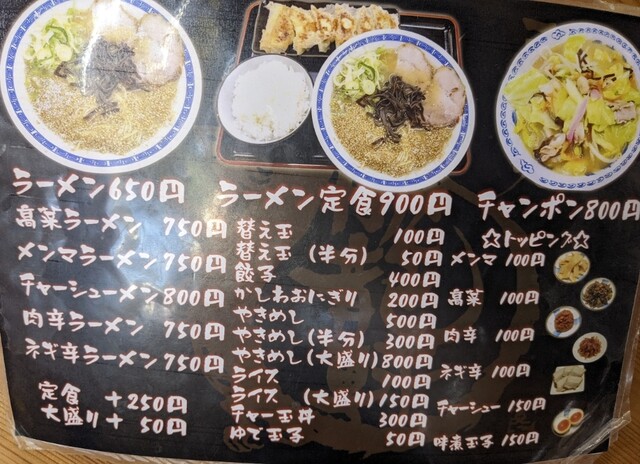 ラーメン650円
高菜ラーメン 750円
メンマラーメン750円
チャーシューメン800円
肉辛ラーメン 750円
ネギ辛ラーメン750円
定食 +250円
大盛り+ 50円
ラーメン定食900円
替え玉 100円
替え玉(半分) 50円
餃子 400円
かしわおにぎり 200円
やきめし 500円
やきめし(半分) 300円
やきめし(大盛り)800円
ライス 100円
ライス (大盛り)150円
チャー玉丼 300円
ゆで玉子 50円
チャンポン800円
☆トッピング☆
メンマ 100円
高菜 100円
肉辛 100円
ネギ辛 100円
チャーシュー 150円
味煮玉子 150円